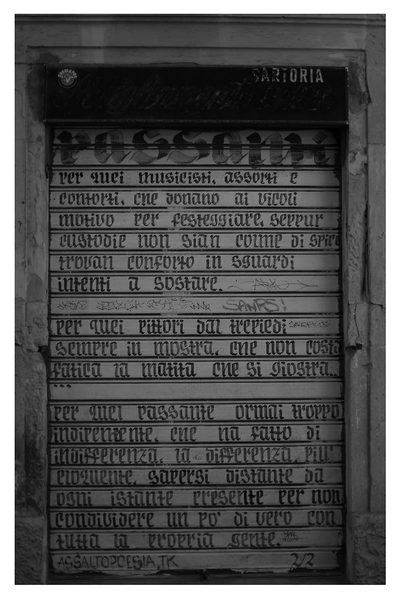 SARTORIA
Passanti
per quei musicisti, assorti e
contorti, che donano ai vicoli
motivo per festeggiare, seppur
custodie non sian colme di spicci
trovan conforto in sguardi
intenti a sostare.
SAMPS!
per quei pittori dal treppiedi
sempre in mostra, che non costa
fatica la matita che si giostra...
...
per quel passante ormai troppo
indifferente, che ha fatto di
indifferenza, la differenza più
eloquente, sapersi distante da
ogni istante presente per non
condividere un po' di vero con
tutta la propria gente.
ASSALTOPOESIA, TK 2/2